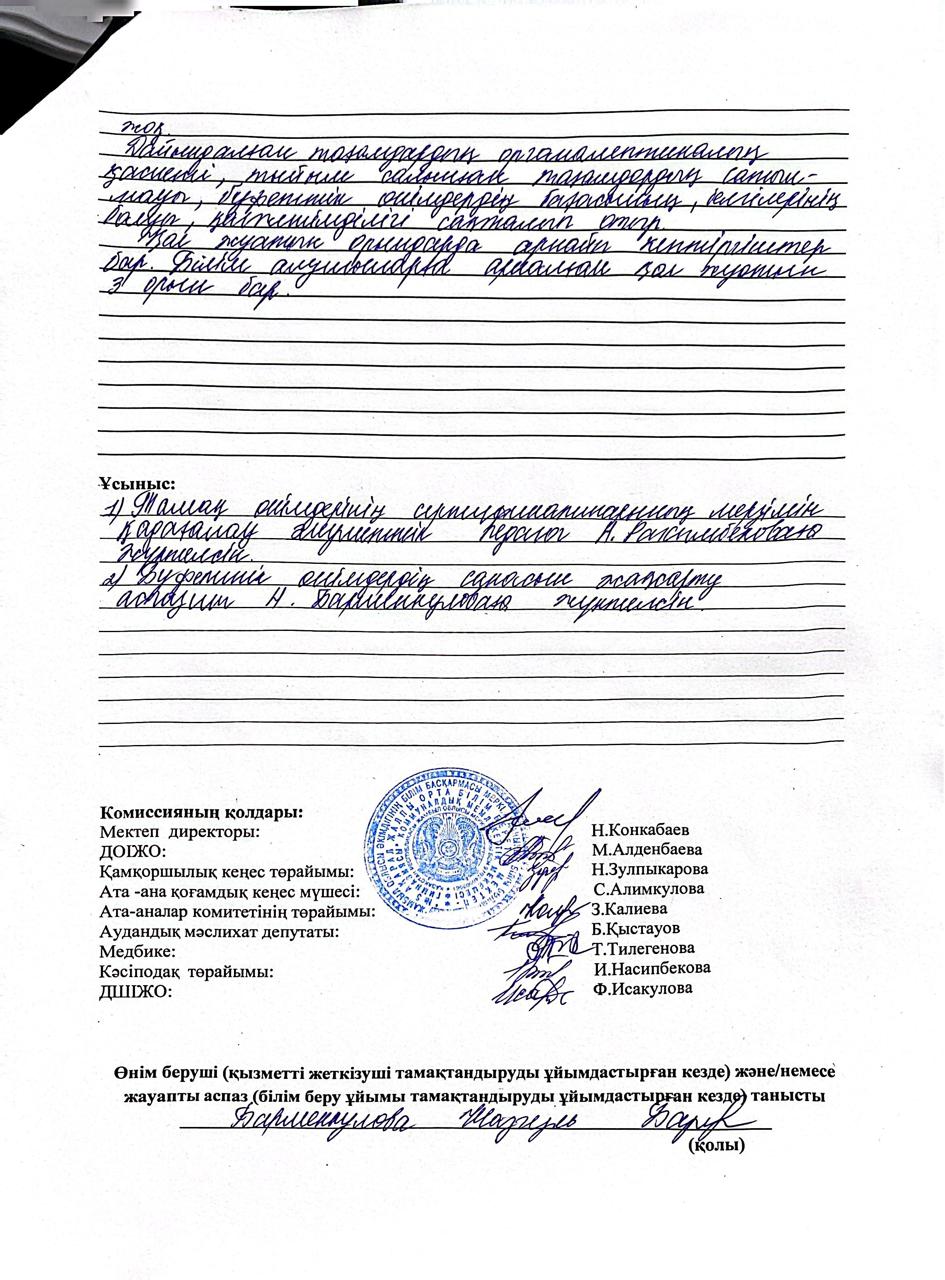 жоқ.
Дайындалған тағамдардың органалептикалық
қасиеті, тыйым салынған тағамдардың сатыл-
мауы, буфеттік өнімдердің бағасының, белгілерінің
болуы, қауіпсіздігі сақталып отыр.
Қол жуатын орындарда арнайы кептіргіштер
бар. Білім алушыларға арналған қол жуатын
3 орын бар.
Ұсыныс:
1) Тамақ өнімдерінің сертификаттарының мерзімін
қадағалау әлеуметтік педагог А. Рахимбековаға
жүктелсін.
2) Буфеттік өнімдердің сапасын жақсарту
аспазшы Н. Барменкуловаға жүктелсін.
Комиссияның қолдары:
Мектеп директоры: Н.Конкабаев
ДОІЖО: М.Алденбаева
Қамқоршылық кеңес төрайымы: Н.Зулпыкарова
Ата -ана қоғамдық кеңес мүшесі: С.Алимкулова
Ата-аналар комитетінің төрайымы: З.Калиева
Аудандық мәслихат депутаты: Б.Қыстауов
Медбике: Т.Тилегенова
Кәсіподақ төрайымы: И.Насипбекова
ДШІЖО: Ф.Исакулова
Өнім беруші (қызметті жеткізуші тамақтандыруды ұйымдастырған кезде) және/немесе
жауапты аспаз (білім беру ұйымы тамақтандыруды ұйымдастырған кезде) танысты
Барменкулова Назгуль
(қолы)